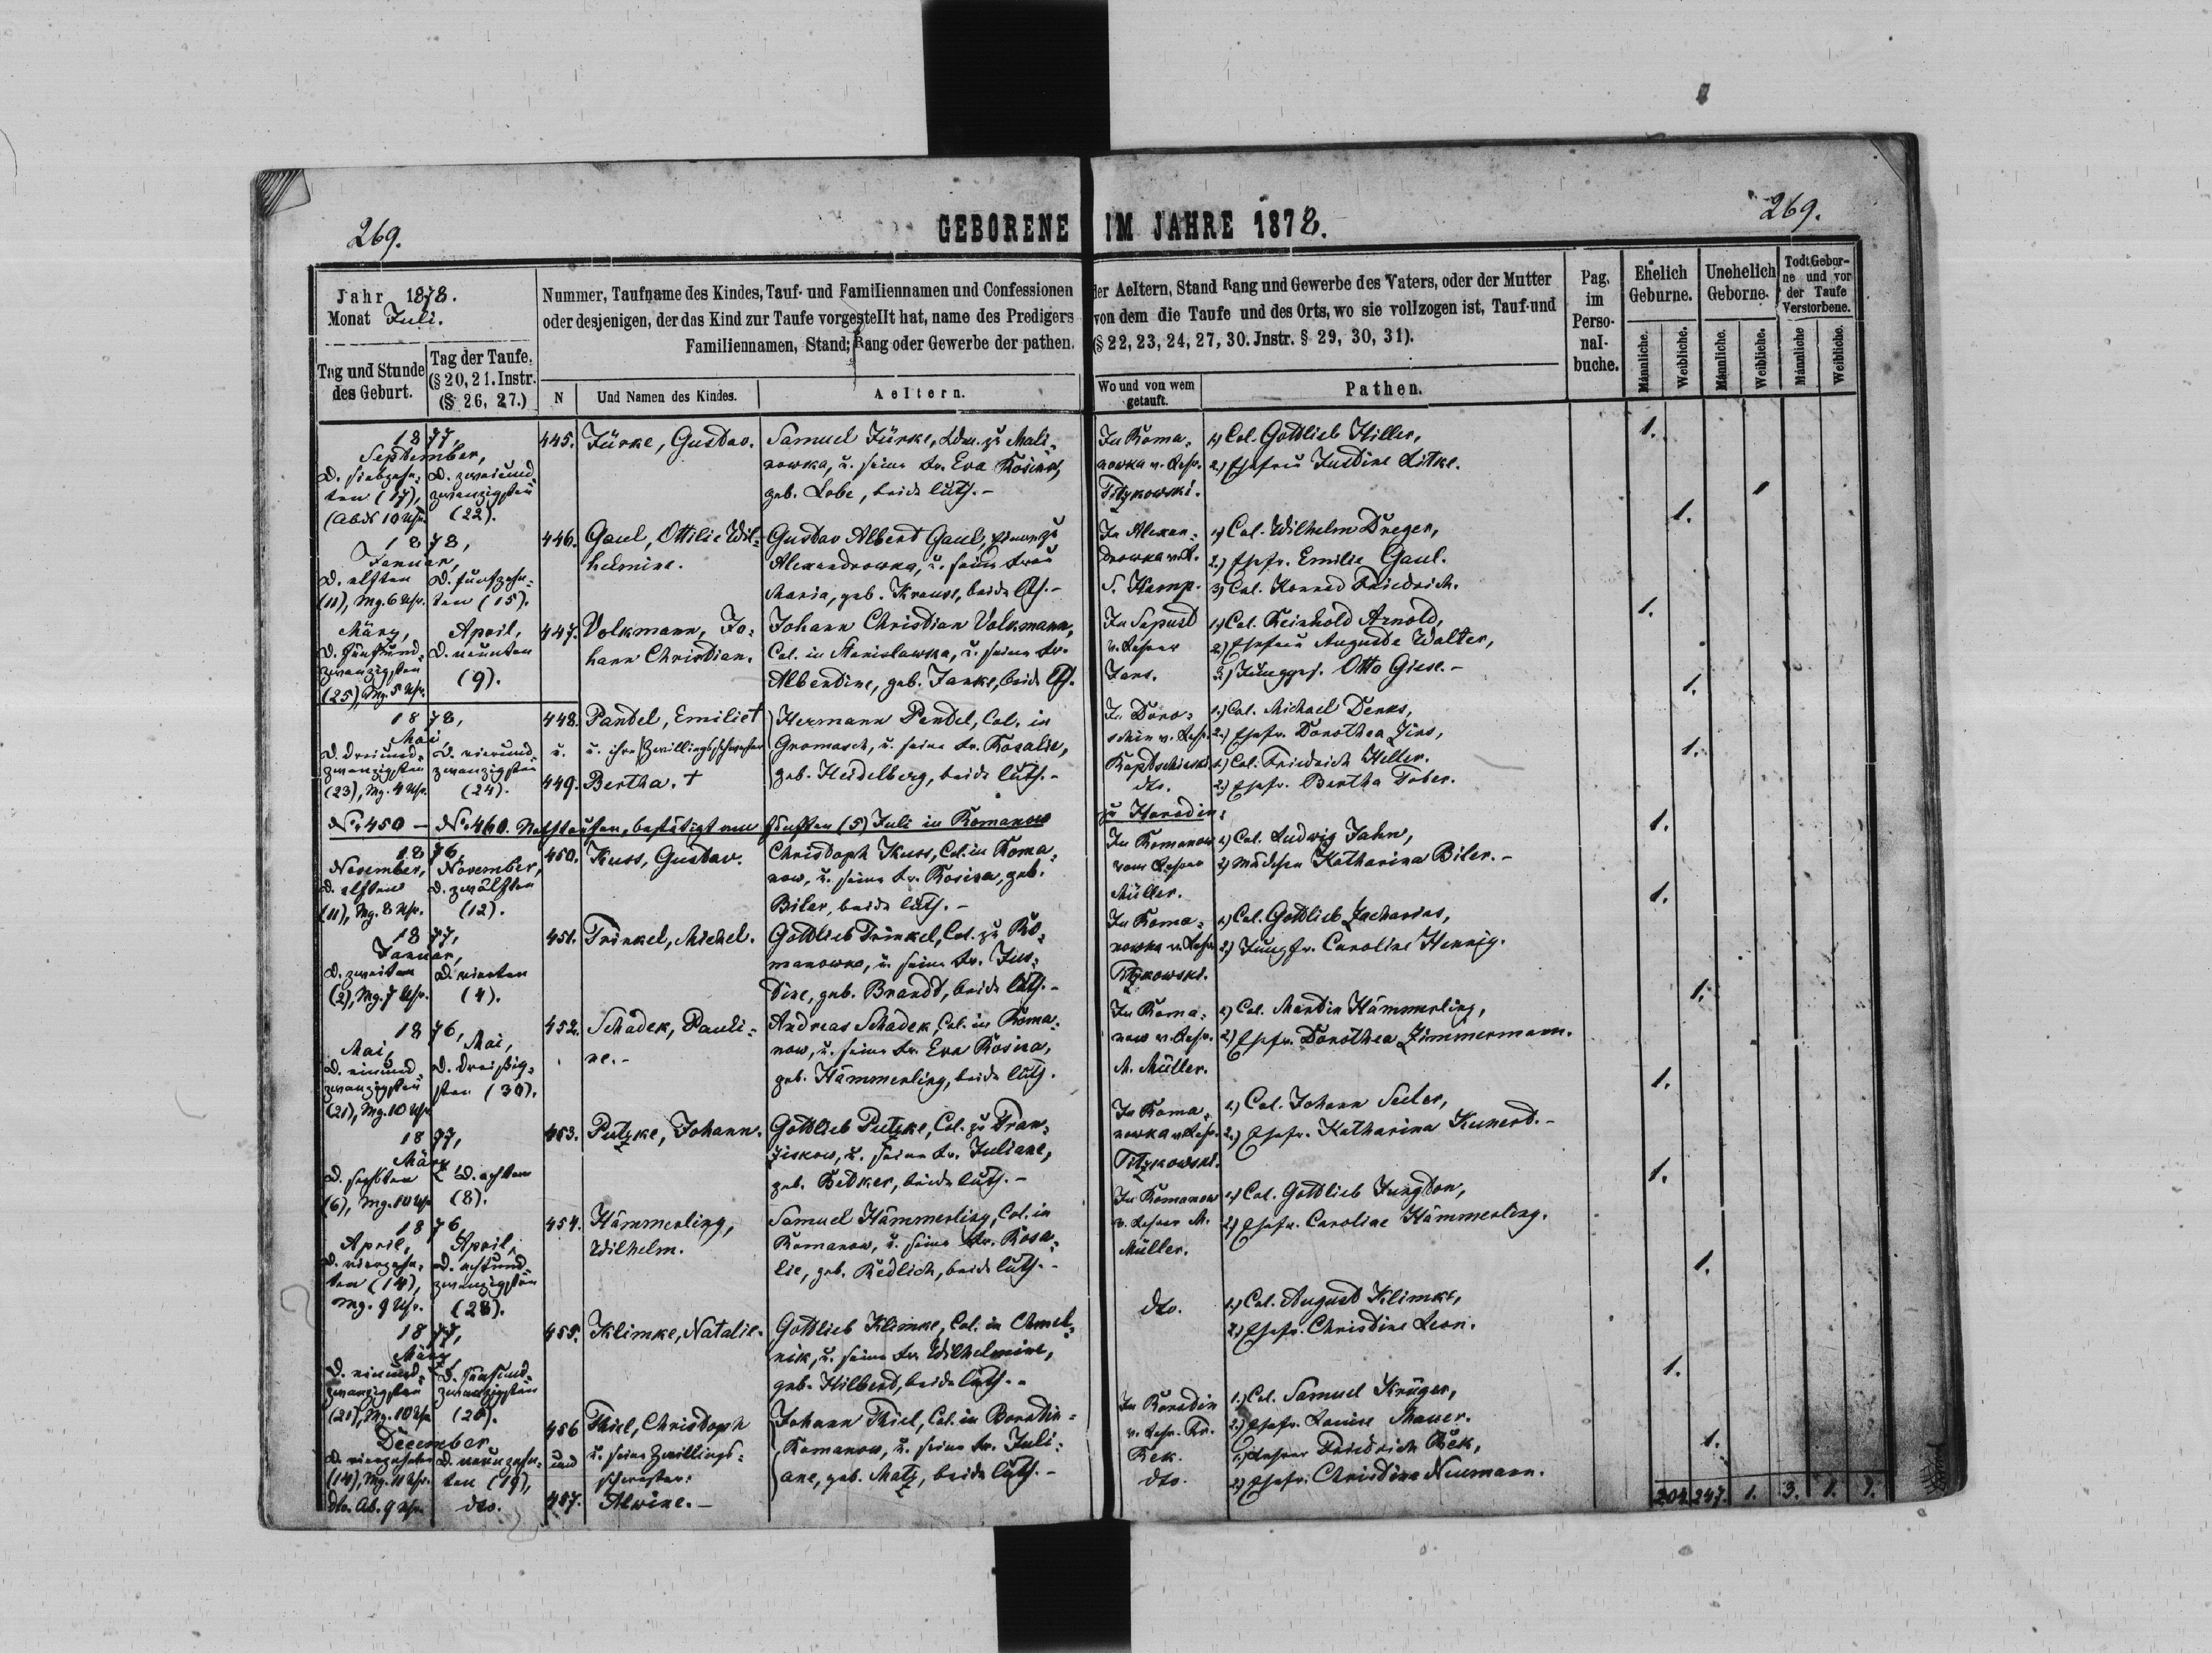 269.
GEBORENE IM JAHRE 1878.
269.
Jahr 1878.
Monat Juli.
Tag und Stunde
des Geburt.
Tag der Taufe.
(§ 20, 21. Instr.
(§ 26, 27.)
Nummer, Taufname des Kindes, Tauf- und Familiennamen und Confessionen
oder desjenigen, der das Kind zur Taufe vorgestellt hat, name des Predigers
Familiennamen, Stand; Rang oder Gewerbe der pathen.
N
Und Namen des Kindes.
Aeltern.
der Aeltern, Stand Rang und Gewerbe des Vaters, oder der Mutter
von dem die Taufe und des Orts, wo sie vollzogen ist, Tauf-und
(§ 22, 23, 24, 27, 30. Jnstr. § 29, 30, 31).
Wo und von wem
getauft.
Pathen.
Pag.
im
Perso-
nal-
buche.
Ehelich
Geburne.
Unehelich
Geborne.
Todt Gebor-
ne und vor
der Taufe
Verstorbene.
Männliche.
Weibliche.
Männliche.
Weibliche.
Männliche
Weibliche.
1877,
September,
D. siebzehn-
ten (17),
(Abds 10 Uhr.
D. zweiund
zwanzigsten
(22).
445.
Jürke, Gustav.
Samuel Jürke, Ldm. zu Mali-
nowka, u. seine Fr. Eva Rosina,
geb. Lobe, beide luth.-
In Roma-
nowka v. Lehr.
Titzkowski.
1.) Col. Gottlieb Hiller,
2.) Ehefrau Justine Litke.
1.
1878,
Januar,
D. elften
(11), Mg. 6 Uhr.
D. fünfzehn-
ten (15).
446.
Gaul, Ottilie Wil-
helmine.
Gustav Albert Gaul, zu
Alexandrowka, u. seine Frau
Maria, geb. Krause, beide lth.-
In Alexan-
drowka v. L.
S. Kemp.
1.) Col. Wilhelm Dreger,
2.) Ehefr. Emilie Gaul.
3.) Col. Konrad Friedrich.
1.
März,
D. fünfund-
zwanzigsten
(25), Mg. 5 Uhr.
April,
D. neunten
(9).
447.
Volkmann, Jo-
hann Christian.
Johann Christian Volkmann,
Col. in Stanislawka, u. seine Fr.
Albertine, geb. Janke, beide lth.
In Sapust
v. Lehrer
Jans.
1.) Col. Reinhold Arnold,
2.) Ehefrau Auguste Walter,
3.) Jünggs. Otto Giese.-
1.
1878,
Mai,
D. dreiund-
zwanzigsten
(23), Mg. 4 Uhr.
D. vierund-
zwanzigsten
(24).
448.
u.
449.
Pandel, Emilie †
u. ihre Zwillingsschwester
Bertha. †
Hermann Pendel, Col. in
Gromasch, u. seine Fr. Rosalie,
geb. Heidelberg, beide luth.-
In Doro-
schin v. Lehr.
dto.
1.) Col. Michael Denks,
2.) Ehefr. Dorothea Zins,
1.) Col. Friedrich Heller.
2.) Ehefr. Bertha Tober.
1.
1.
No. 450 - No. 460. Nottaufen, bestätigt am fünften (5) Juli in Romanow
zu Horodin:
1876,
November,
D. elften
(11), Mg. 8 Uhr.
November,
D. zwölften
(12).
450.
Kuss, Gustav.
Christoph Kuss, Col. in Roma-
now, u. seine Fr. Rosina, geb.
Biler, beide luth.-
In Romanow
vom Lehrer
Müller.
1.) Col. Ludwig Jahn,
2.) Mädchen Katharina Biler.-
1.
1877,
Januar,
D. zweiten
(2), Mg. 7 Uhr.
D. vierten
(4).
451.
Trinkel, Michel.
Gottlieb Trinkel, Col. zu Ro-
manowka, u. seine Fr. Jus-
tine, geb. Brandt, beide luth.-
In Roma-
nowka v. Lehr
Titzkowski.
1.) Col. Gottlieb Zacharias,
2.) Jungfr. Caroline Hennig.
1.
1876,
Mai,
D. einund-
zwanzigsten
(21), Mg. 10 Uhr
Mai,
D. dreißig-
sten (30).
452.
Schadek, Pauli-
ne.-
Andreas Schadek, Col. in Roma-
now, u. seine Fr. Eva Rosina,
geb. Hämmerling, beide luth.
In Roma-
now v. Lehr.
M. Müller.
1.) Col. Martin Hämmerling,
2.) Ehefr. Dorothea Zimmermann.
1.
1877,
März,
D. sechsten
(6), Mg. 10 Uhr
D. achten
(8).
453.
Putzke, Johann.
Gottlieb Putzke, Col. zu Fran-
ziskow, u. seine Fr. Juliane,
geb. Betker, beide luth.-
In Roma-
nowka v. Lehr.
Titzkowski.
1.) Col. Johann Seeler,
2.) Ehefr. Katharina Kunert.-
1.
1876,
April,
D. vierzehn-
ten (14),
Mg. 9 Uhr.
April,
D. achtund-
zwanzigsten
(28).
454.
Hämmerling,
Wilhelm.
Samuel Hämmerling, Col. in
Romanow, u. seine Fr. Rosa-
lie, geb. Redlich, beide luth.-
In Romanow
v. Lehrer M.
Müller.
1.) Col. Gottlieb Jungton,
2.) Ehefr. Caroline Hämmerling.
1.
1877,
März,
D. einund-
zwanzigsten
(21), Mg. 10 Uhr
D. fünfund-
zwanzigsten
(25).
455.
Klimke, Natalie.
Gottlieb Klimke, Col. in Chmel-
nik, u. seine Fr. Wilhelmine,
geb. Hilbert, beide luth.-
dto.
1.) Col. August Klimke,
2.) Ehefr. Christine Leon.
1.
December,
D. vierzehnten
(14), Mg. 11 Uhr.
dto. Ab. 9 Uhr.
D. neunzehn-
ten (19),
dto.
456
und
457.
Thiel, Christoph
u. seine Zwillings-
schwester:
Alwine.-
Johann Thiel, Col. in Borodin-
Romanow, u. seine Fr. Juli-
ane, geb. Matz, beide luth.-
In Borodin
v. Lehr. Fr.
Rek.
dto.
1.) Col. Samuel Krüger,
2.) Ehefr. Louise Mauer.
1.) Lehrer Friedrich Rek,
2.) Ehefr. Christine Neumann.
1.
1.
204 247. 1. 3. 1. 1.